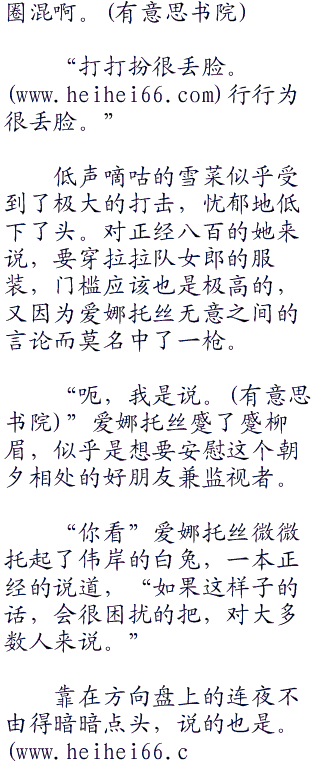 圈混啊。(有意思书院)
“打打扮很丢脸。
(www.heihei66.com)行行为
很丢脸。”
低声嘀咕的雪菜似乎受
到了极大的打击，忧郁地低
下了头。对正经八百的她来
说，要穿拉拉队女郎的服
装，门槛应该也是极高的，
又因为爱娜托丝无意之间的
言论而莫名中了一枪。
“呃，我是说。(有意思
书院)”爱娜托丝蹙了蹙柳
眉，似乎是想要安慰这个朝
夕相处的好朋友兼监视者。
“你看”爱娜托丝微微
托起了伟岸的白兔，一本正
经的说道，“如果这样子的
话，会很困扰的把，对大多
数人来说。”
靠在方向盘上的连夜不
由得暗暗点头，说的也是。
(www.heihei66.c